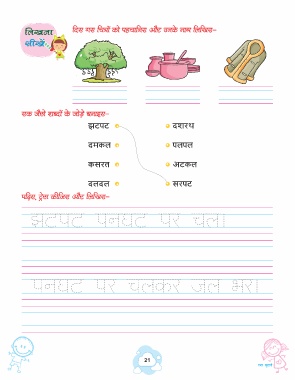 लिखना
सीखें
दिए गए चित्रों को पहचानिए और उनके नाम लिखिए-
एक जैसे शब्दों के जोड़े बनाइए-
झटपट दशरथ
दमकल पलपल
कसरत अटकल
दलदल सरपट
पढ़िए, ट्रेस कीजिए और लिखिए-
झटपट पनघट पर चला
पनघट पर चलकर जल भरा
21